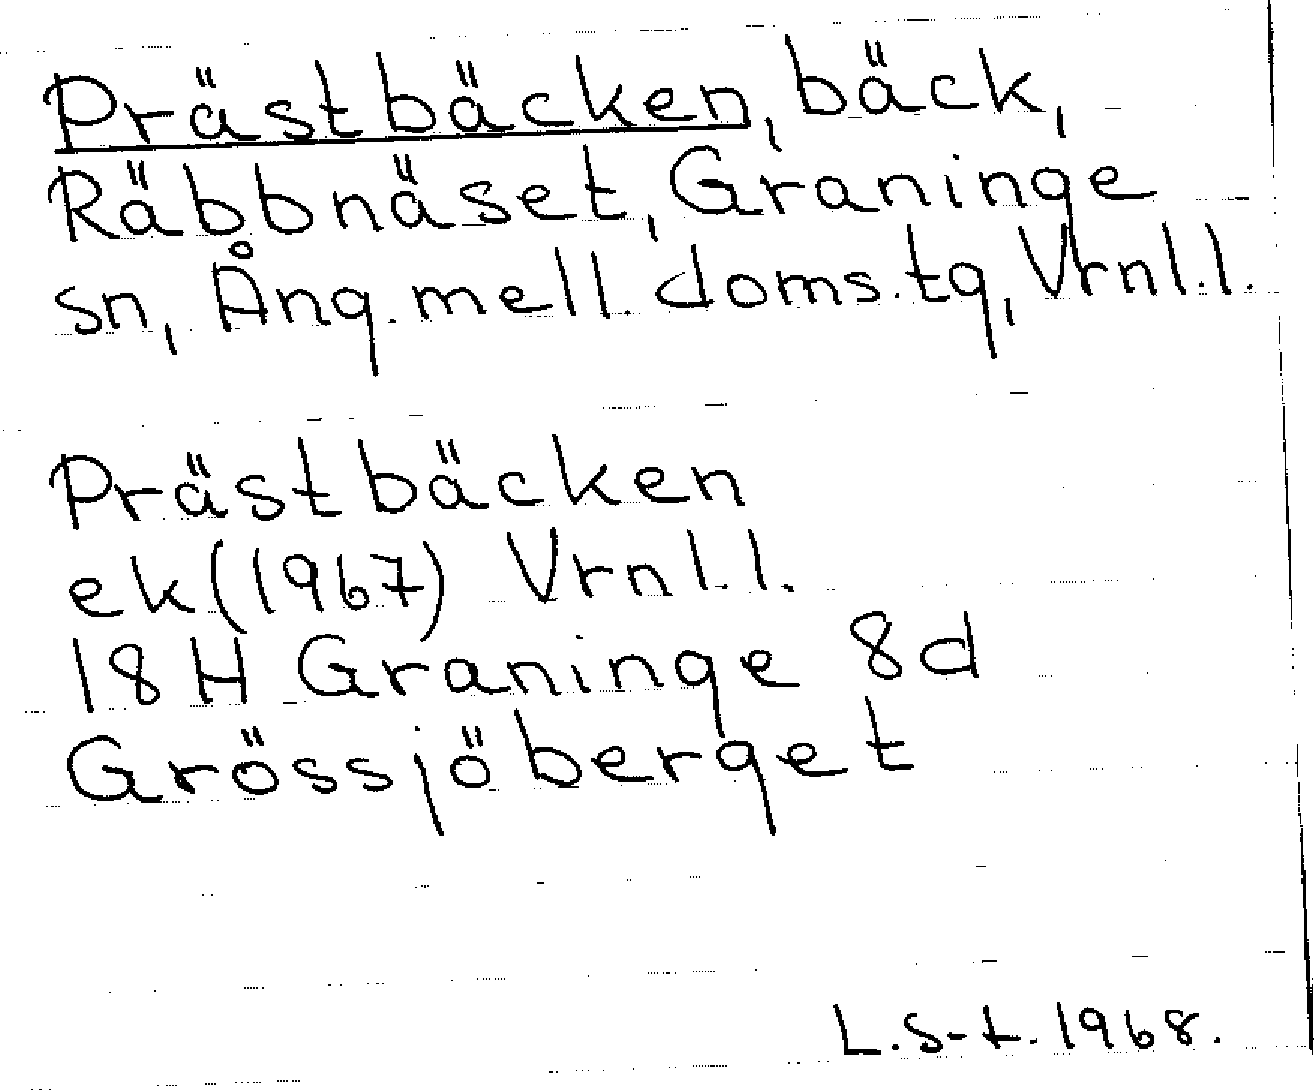 Prästbäcken, bäck,
Räbbnäset, Graninge
sn, Ång. mell. doms.tg, Vrnl.l.
Prästbäcken
ek(1967) Vrnl.l.
18 H Graninge 8d
Grössjöberget
L.S-t. 1968.